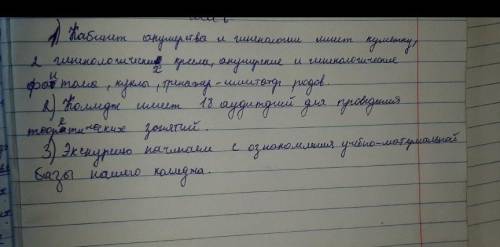 1) Кабинет акушерства и гинекологии имеет кушетку,
2 гинекологических кресла, акушерские и гинекологические
фантома, куклы, тренажер-имитатор родов.
2) Колледж имеет 18 аудиторий для проведения
теоретических занятий.
3) Экскурсию начинаем с ознакомления учебно-материальной
базы нашего колледжа.